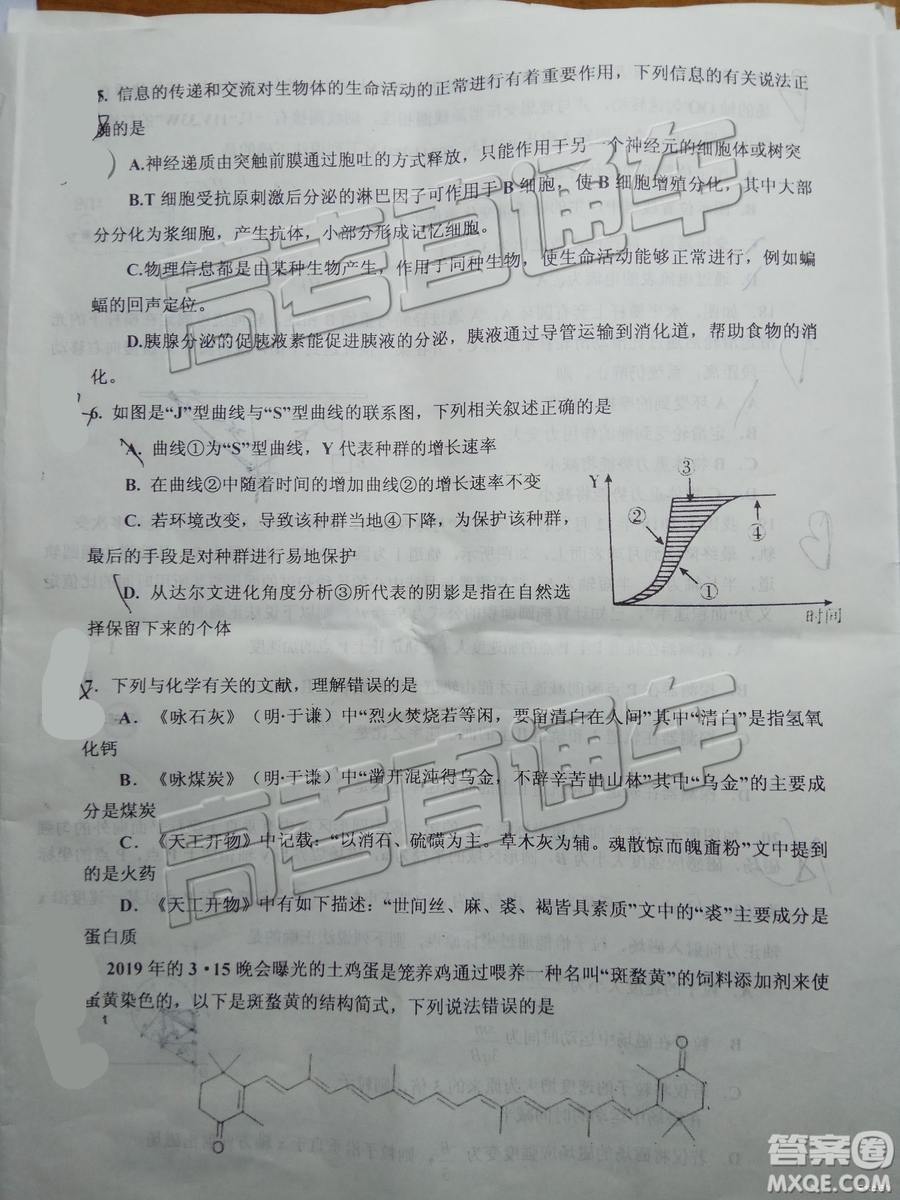 5. 信息的传递和交流对生物体的生命活动的正常进行有着重要作用，下列信息的有关说法正
确的是
A.神经递质由突触前膜通过胞吐的方式释放，只能作用于另一个神经元的细胞体或树突
B.T 细胞受抗原刺激后分泌的淋巴因子可作用于 B 细胞，使 B 细胞增殖分化，其中大部
分分化为浆细胞，产生抗体，小部分形成记忆细胞。
C.物理信息都是由某种生物产生，作用于同种生物，使生命活动能够正常进行，例如蝙
蝠的回声定位。
D.胰腺分泌的促胰液素能促进胰液的分泌，胰液通过导管运输到消化道，帮助食物的消
化。
6. 如图是“J”型曲线与“S”型曲线的联系图，下列相关叙述正确的是
A. 曲线①为“S”型曲线，Y 代表种群的增长速率
B. 在曲线②中随着时间的增加曲线②的增长速率不变
C. 若环境改变，导致该种群当地④下降，为保护该种群，
最后的手段是对种群进行易地保护
D. 从达尔文进化角度分析③所代表的阴影是指在自然选
择保留下来的个体
Y
③
②
④
①
时间
7. 下列与化学有关的文献，理解错误的是
A．《咏石灰》（明·于谦）中“烈火焚烧若等闲，要留清白在人间”其中“清白”是指氢氧
化钙
B．《咏煤炭》（明·于谦）中“凿开混沌得乌金，不辞辛苦出山林”其中“乌金”的主要成
分是煤炭
C．《天工开物》中记载：“以消石、硫磺为主。草木灰为辅。魂散惊而魄齑粉”文中提到
的是火药
D．《天工开物》中有如下描述：“世间丝、麻、裘、褐皆具素质”文中的“裘”主要成分是
蛋白质
2019 年的 3·15 晚会曝光的土鸡蛋是笼养鸡通过喂养一种名叫“斑蝥黄”的饲料添加剂来使
蛋黄染色的，以下是斑蝥黄的结构简式，下列说法错误的是
O
O
高考直通车
高考直通车
答案圈
MXQE.COM